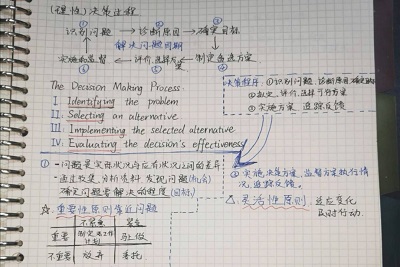 (理性)决策过程
① ② ③
识别问题 → 诊断原因 → 确定目标
解决问题周期
实施和监督 ← 评价、选择方案 ← 制定备选方案
⑥ ⑤ ④
The Decision Making Process:
I. Identifying the problem
II. Selecting an alternative
III. Implementing the selected alternative
IV. Evaluating the decision's effectiveness
决策程序:①识别问题,诊断原因
②拟定、评价、选择可行方案
③实施方案 追踪反馈
① -问题是实际状况与应有状况之间的差异
-通过收集、分析资料 发现问题(机会)
确定问题要解决的程度(目标)
③实施决策方案,监督方案执行情况,追踪反馈。
△ 灵活性原则:适应变化
即时行动.
☆ 重要性原则
不紧急 紧急
重要 制定 工作计划 马上做
不重要 放弃 委托